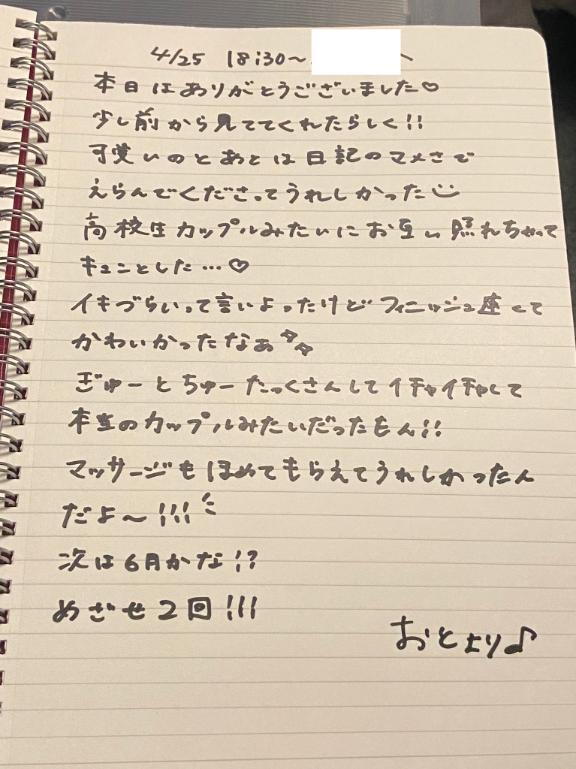 4/25 18:30〜
本日はありがとうございました♡
少し前から見ててくれたらしく!!
可愛いのとあとは日記のマメさで
えらんでくださってうれしかった
高校生カップルみたいにお互い照れちゃって
キュンとした…♡
イキづらいって言いよったけどフィニッシュ座って
かわいかったなぁ
ぎゅーとちゅーたっくさんしてイチャイチャして
本当のカップルみたいだったもん!!
マッサージもほめてもらえてうれしかったん
だよ〜!!!
次は6月かな!?
めざせ2回!!!
おとより♪